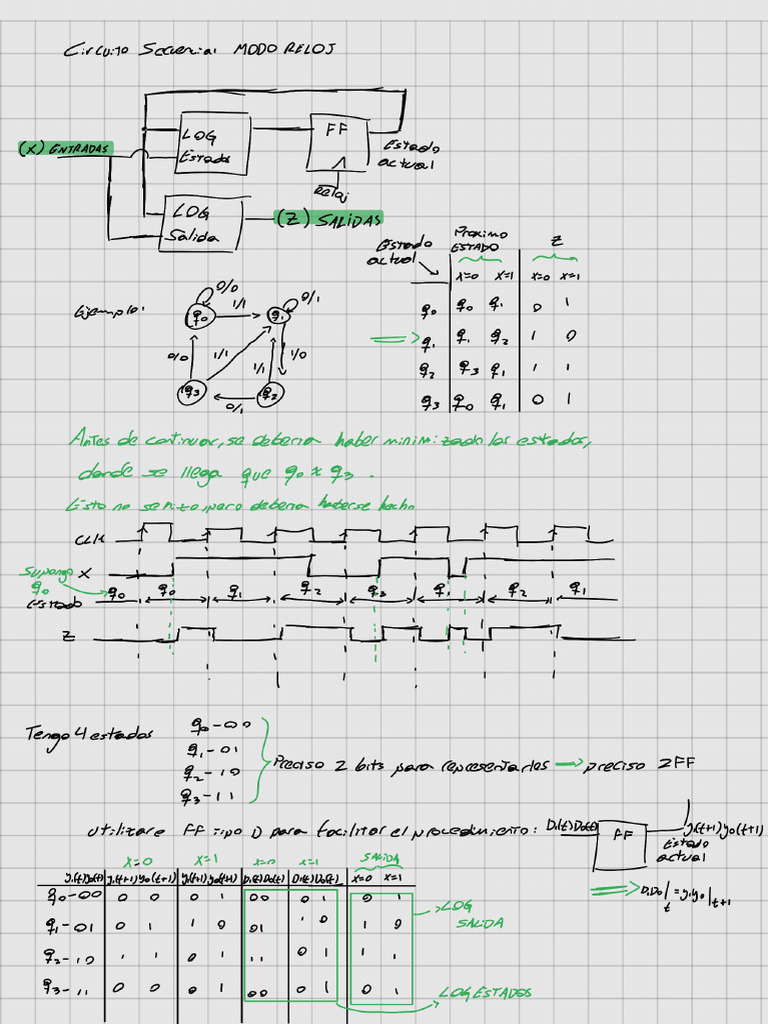 Circuito Secuencial MODO RELOJ
LOG
Estado
FF
Reloj
Estado
actual
(X) ENTRADAS
LOG
Salida
(Z) SALIDAS
Estado
actual
PROXIMO
ESTADO
Z
X=0 X=1 X=0 X=1
q0 q0 q1 0 1
q1 q1 q2 1 0
q2 q3 q1 1 1
q3 q0 q1 0 1
Ejemplo:
0/0
1/1
0/1
q0 q1
0/0 1/1 1/1 1/0
q3 q2
0/1
Antes de continuar, se deberia haber minimizado los estados,
donde se llega que q0 x q3.
Esto no se hizo, pero deberia haberse hecho
CLK
X
Supongo
q0
Estado
q0 q0 q1 q2 q3 q1 q2 q1
Z
Tengo 4 estados
q0-00
q1-01
q2-10
q3-11
Preciso 2 bits para representarlos
preciso 2FF
Utilizare FF tipo D para facilitar el procedimiento:
D1(t)D0(t)
FF
y1(t+1)y0(t+1)
Estado
actual
D1D0|t = y1y0|t+1
X=0 X=1 X=0 X=1 SALIDA
y1(t)y0(t) y1(t+1)y0(t+1) y1(t+1)y0(t+1) D1(t)D0(t) D1(t)D0(t) X=0 X=1
q0-00 0 0 0 1 00 0 1 0 1
q1-01 0 1 1 0 01 1 0 1 0
q2-10 1 1 0 1 11 0 1 1 1
q3-11 0 0 0 1 00 0 1 0 1
LOG
SALIDA
LOG ESTADOS